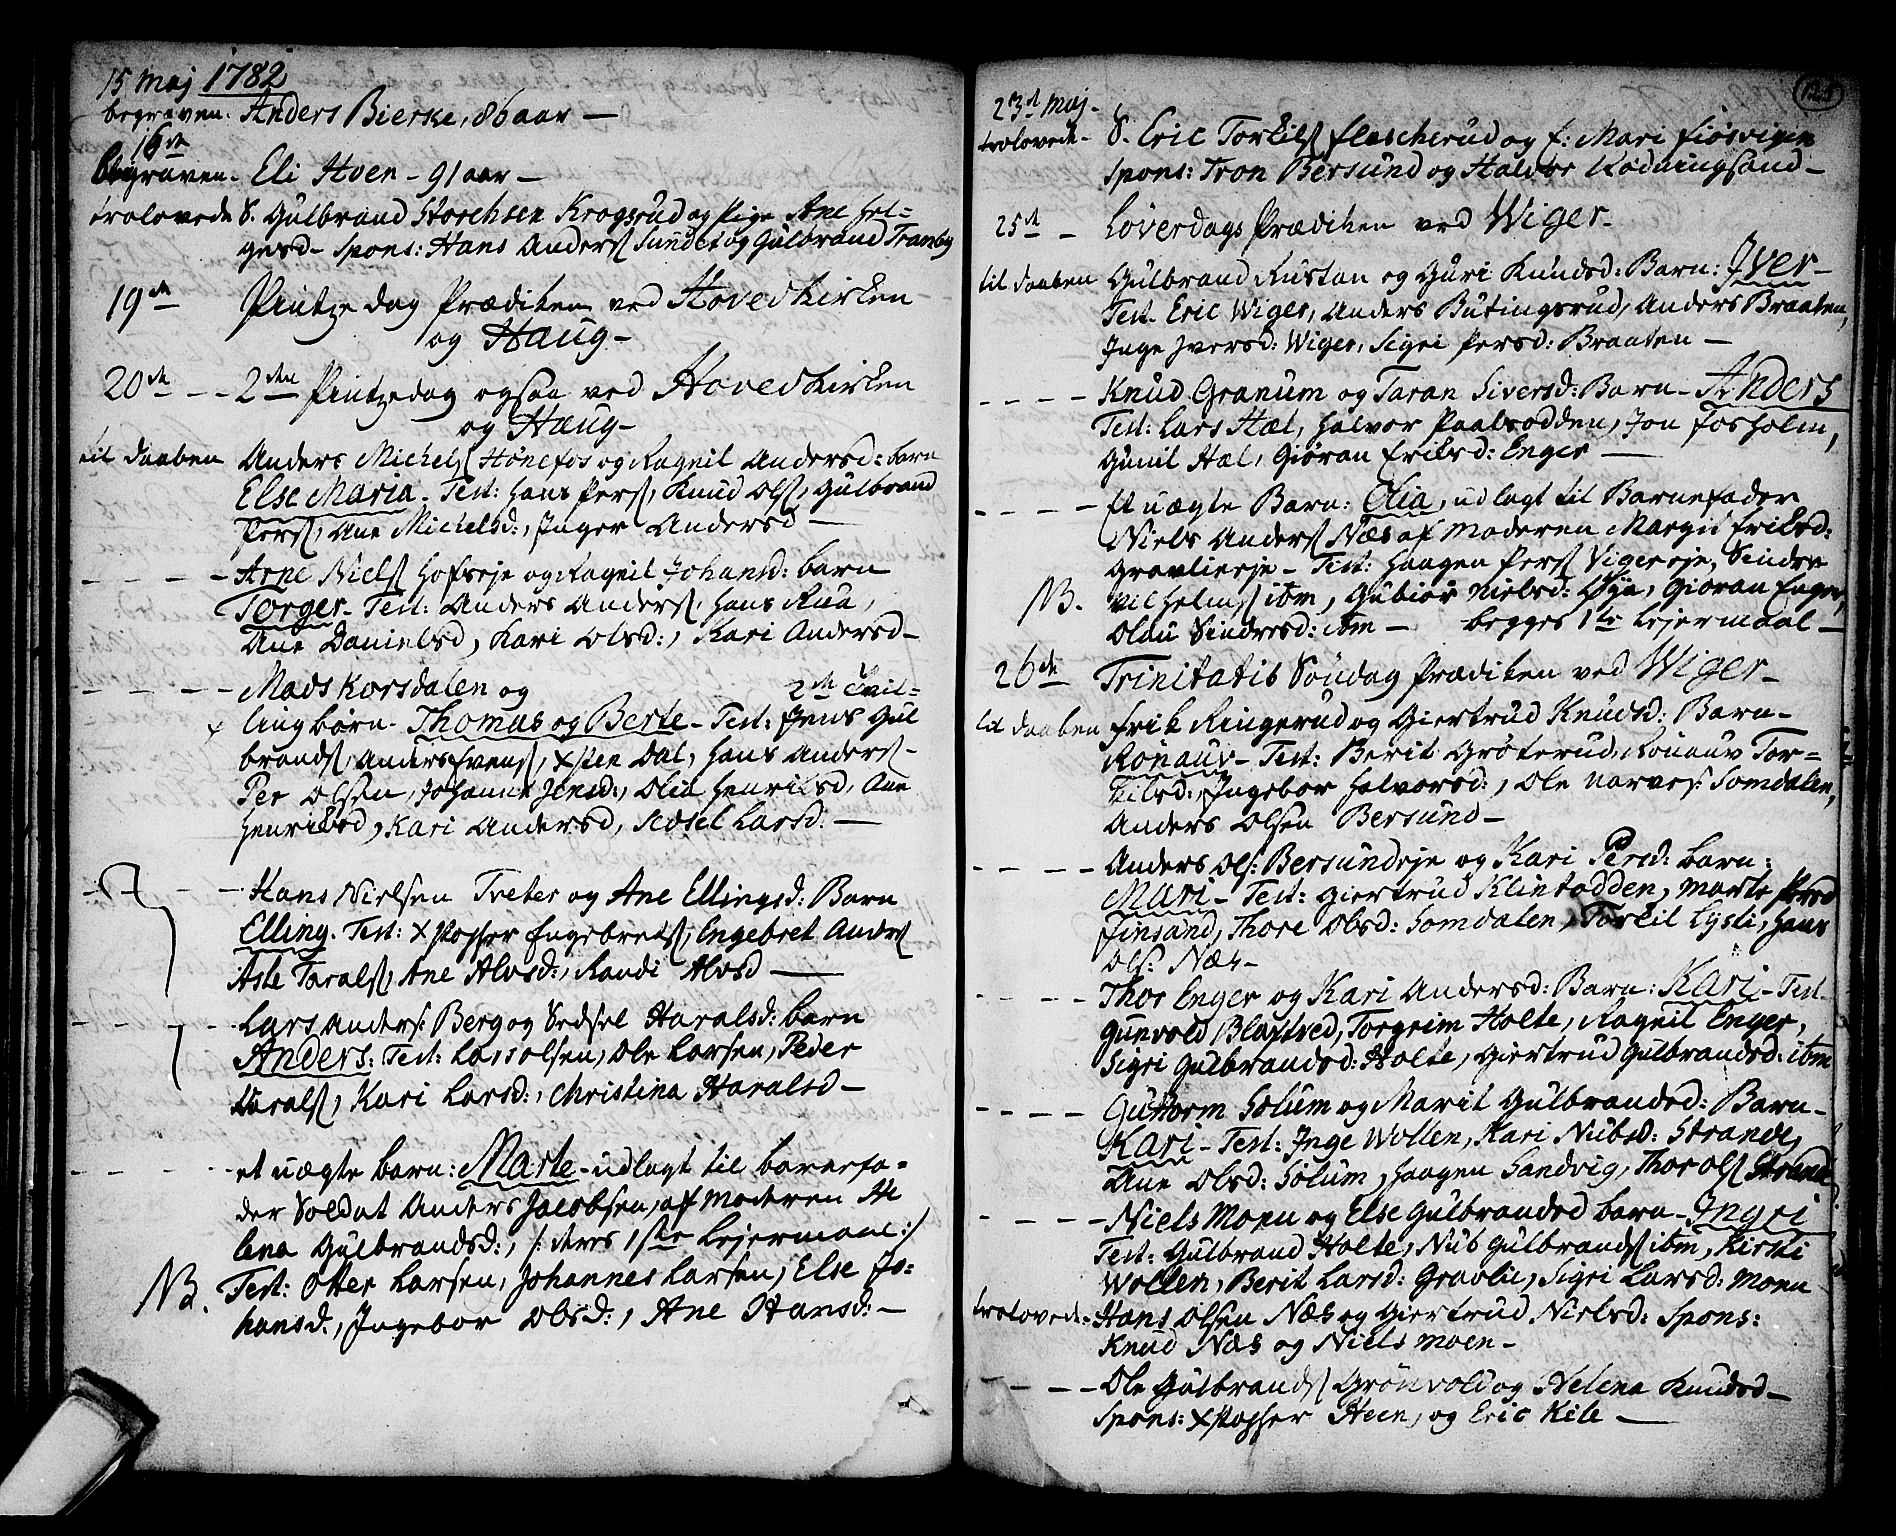 15 Maj 1782
begraven. Anders Bierke, 86 aar —
16de
Begraven. Eli Hoen - 91 aar —
trolovede S. Gulbrand Torchsen Krogsrud og Pige Ane Hel=
gesd - Spons: Hans Anders Sundet og Gulbrand Tranby
19de Pintze dag Prædiken ved Hovedkirken
og Haug -
20de - - 2den Pintzedag ogsaa ved Hovedkirken
og Haug -
til daaben Anders Michels Hønefos og Ragnil Andersd: barn
Else Maria - Test: Hans Pers, Knud Ols, Gulbrand
Pers, Ane Michelsd:, Inger Andersd —
- - - - Arne Niels Hofseje og Ragnil Johansd: barn
Torger - Test: Anders Anders, Hans Rua,
Ane Danielsd, Kari Olsd:, Kari Andersd -
- - - - Mads Korsdalen og 2de Tvil=
lingbørn - Thomas og Berte - Test: Jens Gul
brands, Anders Svens, Xsten Dal, Hans Anders -
Per Olsen, Johanne Jensd:, Olia Henriksd, Ane
Henriksd, Kari Andersd, Sidsel Larsd: —
- - - Hans Nielsen Treter og Ane Ellingsd: Barn
Elling. Test: Xstopher Engebrets, Engebret Anders
Asle Torals, Ane Alvsd:, Randi Alvsd —
- - - - Lars Anders: Berg og Sidsel Haralsd: barn
Anders: Test: Lars Olsen, Ole Larsen, Peder
Harals, Kari Larsd:, Christina Haralsd -
- - - - et uægte barn: Marte - udlagt til barnefa=
der Soldat Anders Jacobsen, af Moderen He
lena Gulbrandsd:, /: deres 1ste Lejermaal :/
NB. Test: Otter Larsen, Johannes Larsen, Else Jo=
hansd:, Ingebor Olsd:, Ane Hansd: -
125
23de Maj -
trolovede - S. Eric Torkils Flascherud og E: Mari Fiøsvigen
Spons: Tron Bersund og Halvor Kødningsand -
25de - Løverdags Prædiken ved Wiger -
til daaben Gulbrand Rustan og Guri Knudsd: Barn: Iver -
Test - Eric Wiger, Anders Butingsrud, Anders Braaten,
Inge Iversd: Wiger, Sigri Persd: Braaten —
- - - - Knud Granum og Taran Siversd: Barn - Anders
Test: Lars Hæl, Halvor Paalsodden, Jon Fosholm,
Gunil Hæl, Giøran Eriksd: Enger —
- - - - Et uægte Barn: Olia, udlagt til Barnefader
Niels Anders Næs af Moderen Margit Eriksd:
Gravlieeje - Test: Haagen Pers Vigereje, Sindre
NB. Vilhelms ibm, Gubiør Nielsd: Øya, Giøran Enger,
Olau Sindresd: ibm - begges 1te Lejermaal -
26de Trinitatis Søndag Prædiken ved Wiger -
til daaben Erik Ringerud og Giertrud Knudsd: Barn -
Rønauv - Test: Berit Grøterud, Rønauv Tor=
kilsd:, Ingebor Halvorsd:, Ole Narves: Somdalen,
Anders Olsen Bersund -
- - - - Anders Ols: Bersundeje og Kari Persd: barn:
Mari - Test: Giertrud Klintodden, Marte Persd
Finsand, Thore Olsd: Somdalen, Torkil Lysli, Hans
Ols: Næs -
- - - - Thor Enger og Kari Andersd: Barn: Kari - Test -
Gunvold Blaxtved, Torgrim Holte, Ragnil Enger,
Sigri Gulbrandsd: Holte, Giertrud Gulbrandsd: ibm
- - - - Guttorm Solum og Marit Gulbrandsd: Barn -
Kari - Test: Inge Wollen, Kari Nubsd: Strande,
Ane Olsd: Solum, Haagen Sandvig, Thor Ols Strande
- - - - Niels Moen og Else Gulbrandsd barn - Ingri
Test: Gulbrand Holte, Nub Gulbrands ibm, Kirsti
Wollen, Berit Larsd: Gravlie, Sigri Larsd: Moen
trolovede: Hans Olsen Næs og Giertrud Nielsd: Spons:
Knud Næs og Niels Moen -
- - - - Ole Gulbrands Grønvold og Helena Knudsd -
Spons: Xstopher Heen, og Eric Kile —